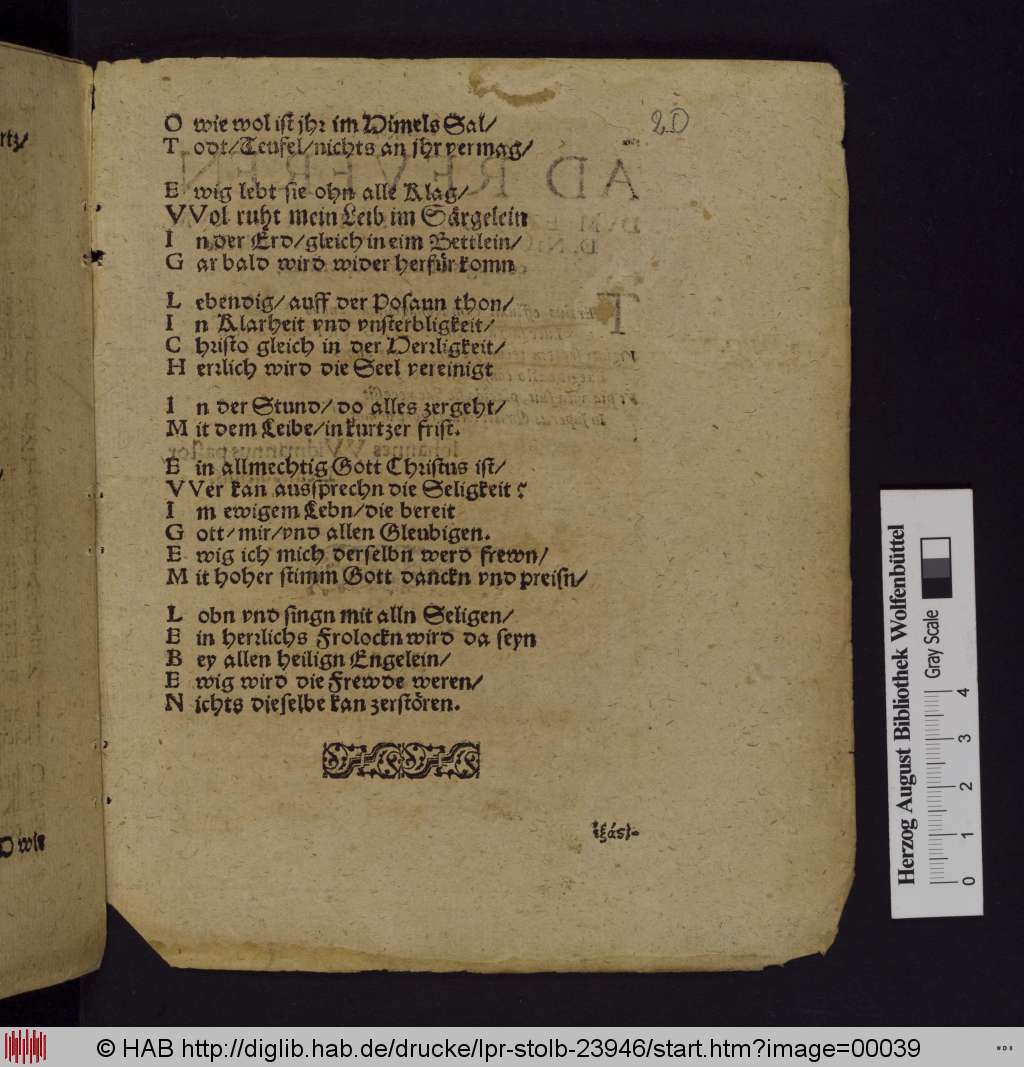 20
O wie wol ist jhr im Himels Sal/
T odt/Teufel/nichts an jhr vermag/
E wig lebt sie ohn alle Klag/
VVol ruht mein Leib im Särgelein
I n der Erd/gleich in eim Bettlein/
G ar bald wird wider herfür komn
L ebendig/ auff der Posaun thon/
I n Klarheit vnd vnsterbligkeit/
C hristo gleich in der Herrligkeit/
H errlich wird die Seel vereinigt
I n der Stund/ do alles zergeht/
M it dem Leibe/in kurtzer frist.
E in allmechtig Gott Christus ist/
VVer kan aussprechn die Seligkeit?
I m ewigem Lebn/die bereit
G ott/mir/vnd allen Gleubigen.
E wig ich mich derselbn werd frewn/
M it hoher stimm Gott danckn vnd preisn/
L obn vnd singn mit alln Seligen/
E in herrlichs Frolockn wird da seyn
B ey allen heilign Engelein/
E wig wird die Frewde weren/
N ichts dieselbe kan zerstören.
rtz/
O wie
Herzog August Bibliothek Wolfenbüttel
Gray Scale
0 1 2 3 4
© HAB http://diglib.hab.de/drucke/lpr-stolb-23946/start.htm?image=00039